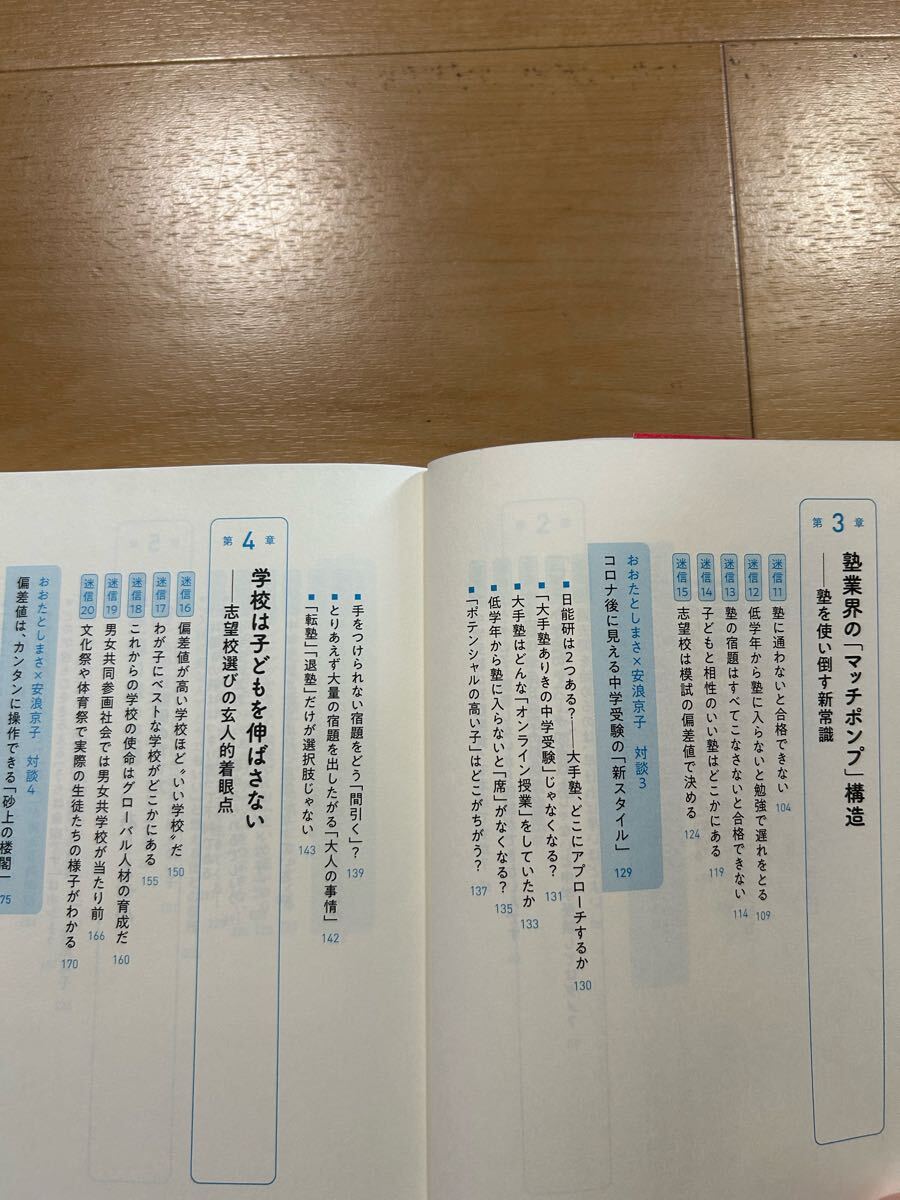 第3章
塾業界の「マッチポンプ」構造
――塾を使い倒す新常識
迷信11 塾に通わないと合格できない 104
迷信12 低学年から塾に入らないと勉強で遅れをとる 109
迷信13 塾の宿題はすべてこなさないと合格できない 114
迷信14 子どもと相性のいい塾はどこかにある 119
迷信15 志望校は模試の偏差値で決める 124
おおたとしまさ×安浪京子 対談3
コロナ後に見える中学受験の「新スタイル」 129
■日能研は2つある?――大手塾、どこにアプローチするか 130
■「大手塾ありきの中学受験」じゃなくなる? 131
■大手塾はどんな「オンライン授業」をしていたか 133
■低学年から塾に入らないと「席」がなくなる? 135
■「ポテンシャルの高い子」はどこがちがう? 137
■手をつけられない宿題をどう「間引く」? 139
■とりあえず大量の宿題を出したがる「大人の事情」 142
■「転塾」「退塾」だけが選択肢じゃない 143
第4章
学校は子どもを伸ばさない
――志望校選びの玄人的着眼点
迷信16 偏差値が高い学校ほど〝いい学校〟だ 150
迷信17 わが子にベストな学校がどこかにある 155
迷信18 これからの学校の使命はグローバル人材の育成だ 160
迷信19 男女共同参画社会では男女共学校が当たり前 166
迷信20 文化祭や体育祭で実際の生徒たちの様子がわかる 170
おおたとしまさ×安浪京子 対談4
偏差値は、カンタンに操作できる「砂上の楼閣」 75